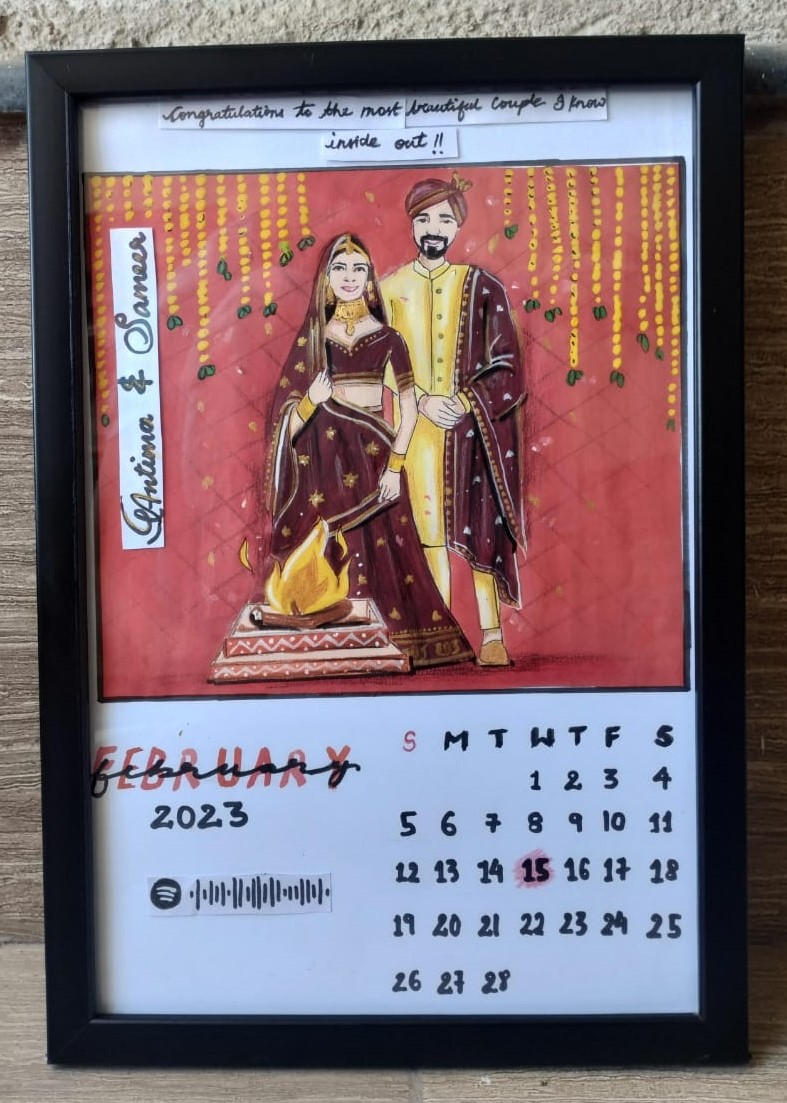 Congratulations to the most beautiful couple I know
inside out !!
Antima & Sameer
FEBRUARY
february
2023
S M T W T F S
1 2 3 4
5 6 7 8 9 10 11
12 13 14 15 16 17 18
19 20 21 22 23 24 25
26 27 28